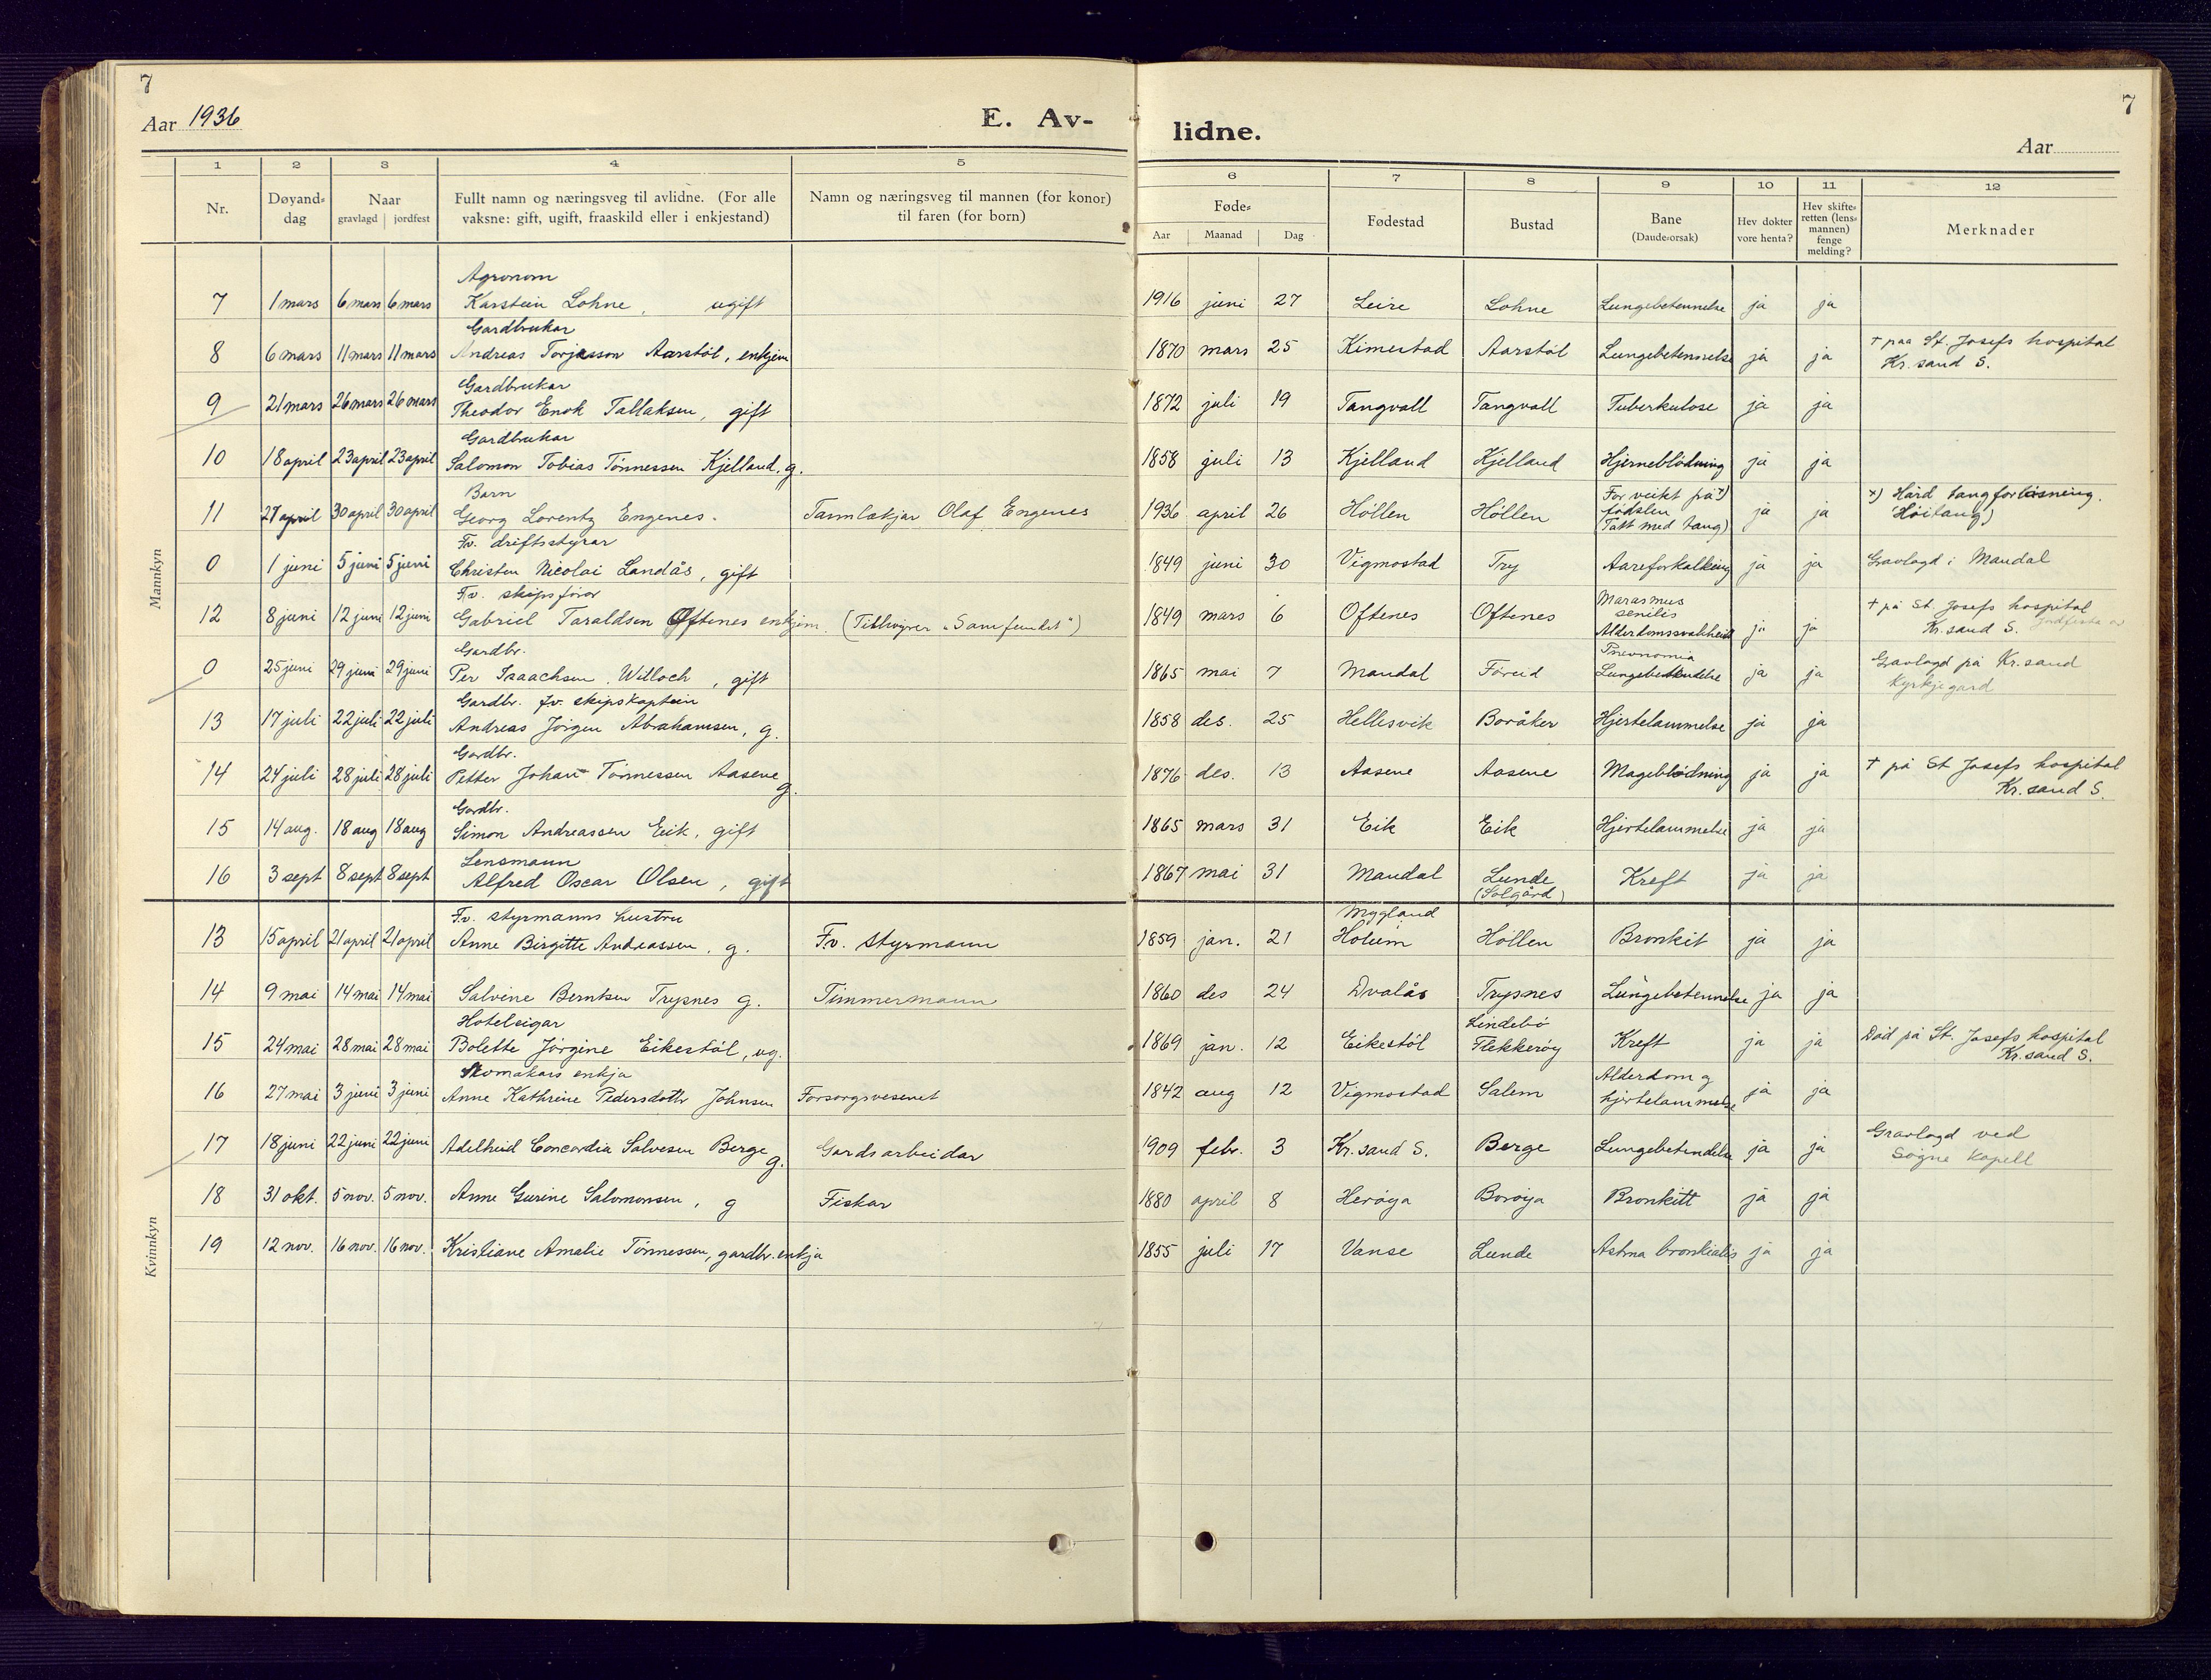 7
Aar 1936
E. Av-
lidne.
7
Aar
1 2 3 4 5
6 7 8 9 10 11 12
Nr.
Døyand-dag
Naar
gravlagd | jordfest
Fullt namn og næringsveg til avlidne. (For alle vaksne: gift, ugift, fraaskild eller i enkjestand)
Namn og næringsveg til mannen (for konor) til faren (for born)
Føde-
Aar | Maanad | Dag
Fødestad
Bustad
Bane
(Daude-orsak)
Hev dokter vore henta?
Hev skifte-retten (lens-mannen) fenge melding?
Merknader
Mannkyn
Agronom
7 1 mars 6 mars 6 mars Karstein Lohne, ugift 1916 juni 27 Leire Lohne Lungebetennelse ja ja
Gardbrukar
8 6 mars 11 mars 11 mars Andreas Torjusson Aarstöl, enkjem 1870 mars 25 Kimestad Aarstöl Lungebetennelse ja ja † paa St. Josefs hospital
Kr. sand S.
Gardbrukar
9 21 mars 26 mars 26 mars Theodor Enok Tallaksen, gift 1872 juli 19 Tangvall Tangvall Tuberkulose ja ja
Gardbrukar
10 18 april 23 april 23 april Salomon Tobias Tönnessen Kjelland, g. 1858 juli 13 Kjelland Kjelland Hjerneblödning ja ja
Barn
11 27 april 30 april 30 april Georg Lorentz Engenes. Tannlækjar Olaf Engenes 1936 april 26 Höllen Höllen For veikt på x)
födslen
(Tatt med tang) ja ja x) Hård tangforlösning.
(Höitang)
Fv. driftsstyrar
0 1 juni 5 juni 5 juni Christen Nicolai Landås, gift 1849 juni 30 Vigmostad Try Aareforkalkning ja ja Gravlagd i Mandal
Fv. skipsförar
12 8 juni 12 juni 12 juni Gabriel Taraldsen Öftenes enkjem. (Tilhøyrer "Samfundet") 1849 mars 6 Oftenes Oftenes Marasmus
senilis
Alderdomssvakheit ja ja † på St. Josefs hospital
Kr. sand S.
Gardbr.
0 25 juni 29 juni 29 juni Per Isaachsen Willoch, gift 1865 mai 7 Mandal Föreid Pnevnomia
Lungebetendelse ja ja Gravlagd på Kr. sand
Kyrkjegard
Gardbr. fv. skipskaptein
13 17 juli 22 juli 22 juli Andreas Jörgen Abrahamsen, g. 1858 des. 25 Hellesvik Boråker Hjertelammelse ja ja
Gardbr.
14 24 juli 28 juli 28 juli Petter Johan Tönnessen Aasene g. 1876 des. 13 Aasene Aasene Mageblödning ja ja † på St Josefs hospital
Kr. sand S.
Gardbr.
15 14 aug. 18 aug 18 aug Simon Andreassen Eik, gift 1865 mars 31 Eik Eik Hjertelammelse ja ja
Lensmann
16 3 sept 8 sept 8 sept Alfred Oscar Olsen, gift 1867 mai 31 Mandal Lunde
(Solgård) Kreft ja ja
Kvinnkyn
Fv. styrmanns hustru
13 15 april 21 april 21 april Anne Birgitte Andreassen, g. Fv. styrmann 1859 jan. 21 Mygland
Holum Höllen Bronkit ja ja
14 9 mai 14 mai 14 mai Salvine Berntsen Trysnes g. Timmermann 1860 des 24 Dvalås Trysnes Lungebetennelse ja ja
Hoteleigar
15 24 mai 28 mai 28 mai Bolette Jörgine Eikestöl, ug. 1869 jan. 12 Eikestöl Lindebö
Flekkeröy Kreft ja ja Död på St. Josefs hospital
Kr. sand S.
Skomakars enkja
16 27 mai 3 juni 3 juni Anne Kathrine Pedersdottr Johnsen Forsorgsvesenet 1842 aug 12 Vigmostad Salem Alderdom og
hjertelammelse ja ja
17 18 juni 22 juni 22 juni Adelheid Concordia Salvesen Berge g. Gardsarbeidar 1909 febr. 3 Kr. sand S. Berge Lungebetendelse ja ja Gravlagd ved
Sögne kapell
18 31 okt. 5 nov. 5 nov. Anne Gurine Salomonsen, g Fiskar 1880 april 8 Heröya Boröya Bronkitt ja ja
19 12 nov. 16 nov. 16 nov. Kristiane Amalie Tönnessen, gardbr. enkja 1855 juli 17 Vanse Lunde Astma bronkialis ja ja